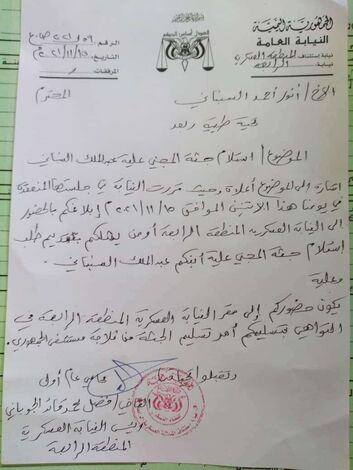 الجمهورية اليمنية
النيابة العامة
نيابة استئناف المنطقة العسكرية
نيابة: الرابعة
العدل أساس الحكم
الرقم
التاريخ: ١٥/١١/٢٠٢١م
المرفقات
الأخ/ أنور أحمد السنباني المحترم
تحية طيبة وبعد
الموضوع/ استلام جثة المجني عليه عبدالملك السنباني
إشارة إلى الموضوع أعلاه وحيث قررت النيابة في جلستها المنعقدة
في يومنا هذا الاثنين الموافق ١٥/١١/٢٠٢١م إبلاغكم بالحضور
إلى النيابة العسكرية المنطقة الرابعة أو من يمثلكم بتقديم طلب
استلام جثة المجني عليه ابنكم عبدالملك السنباني.
وعليه
يكون حضوركم إلى مقر النيابة العسكرية المنطقة الرابعة في
التواهي بتسليمكم أمر تسليم الجثة من ثلاجة مستشفى الجمهوري.
وتقبلوا تحياتنا
محامي عام أول
القاضي/ فضل محمد قائد الجوباني
رئيس النيابة العسكرية
المنطقة الرابعة